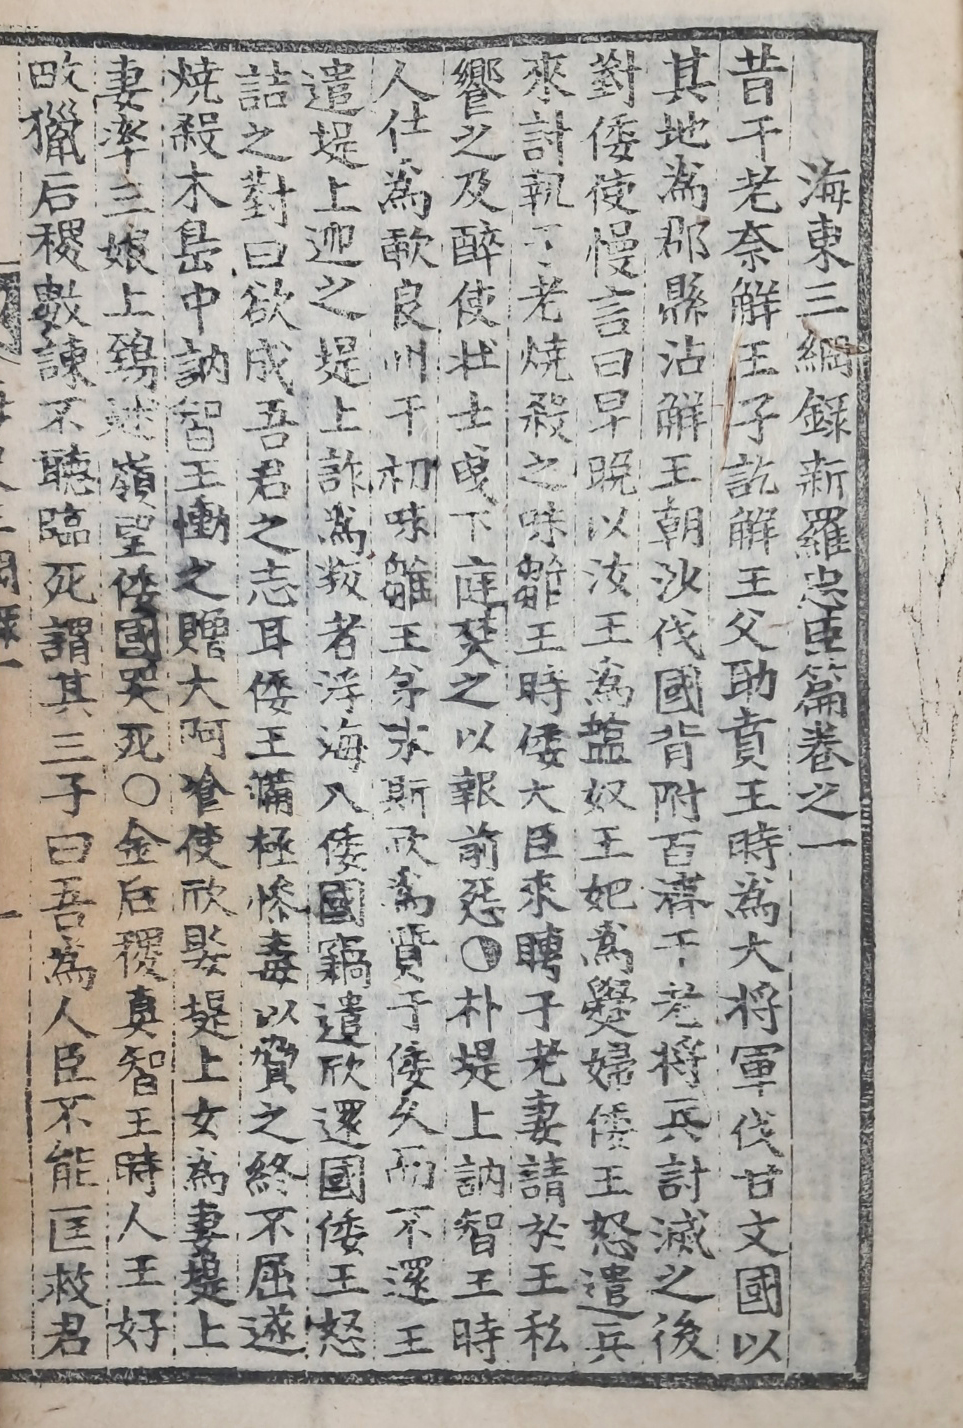 海東三綱錄新羅忠臣篇卷之一
昔于老奈解王子訖解王父助賁王時為大將軍伐甘文國以
其地為郡縣沾解王朝沙伐國背附百濟于老將兵討滅之後
對倭使慢言曰早晚以汝王為鹽奴王妃為爨婦倭王怒遣兵
來討執于老燒殺之味鄒王時倭大臣來聘于老妻請於王私
饗之及醉使壯士曳下庭焚之以報前怨○朴堤上訥智王時
人仕為歃良州干初味雛王第未斯欣為質于倭久而不還王
遣堤上迎之堤上詐為叛者浮海入倭國竊遣欣還國倭王怒
詰之對曰欲成吾君之志耳倭王備極慘毒以質之終不屈遂
燒殺木島中訥智王慟之贈大阿飡使欣娶堤上女為妻堤上
妻率三娘上鵄述嶺望倭國哭死○金后稷真智王時人王好
畋獵后稷數諫不聽臨死謂其三子曰吾為人臣不能匡救君